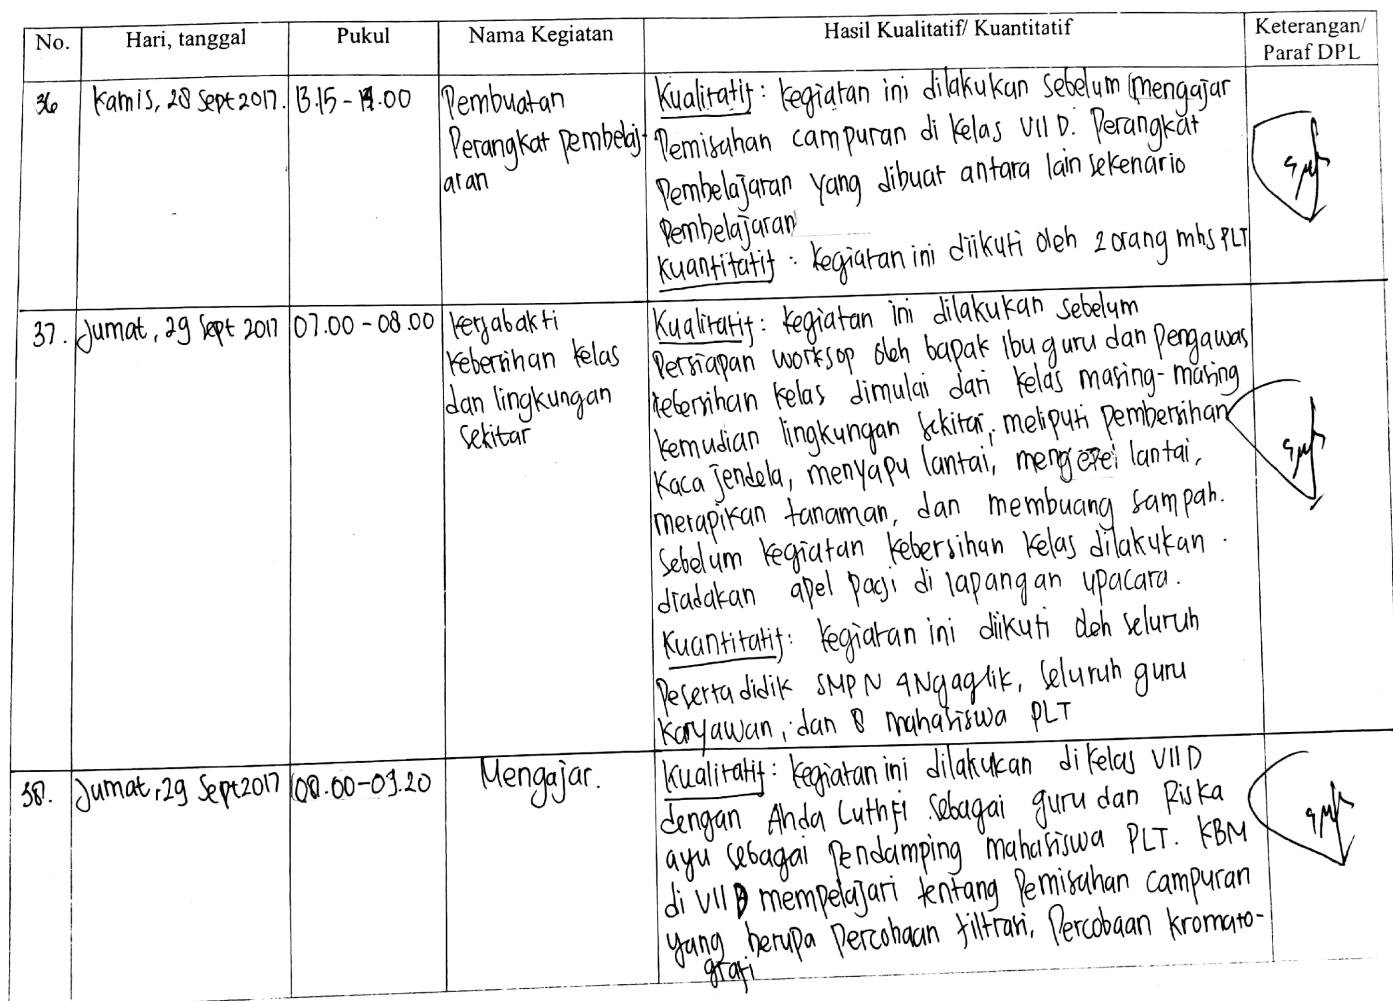 No. Hari, tanggal Pukul Nama Kegiatan Hasil Kualitatif/ Kuantitatif Keterangan/
Paraf DPL
36 Kamis, 28 Sept 2017. 13.15 - 14.00
Pembuatan
Perangkat pembelaj-
aran
Kualitatif : kegiatan ini dilakukan sebelum mengajar
Pemisahan campuran di kelas VII D. Perangkat
Pembelajaran yang dibuat antara lain sekenario
Pembelajaran
Kuantitatif : kegiatan ini diikuti oleh 2 orang mhs PLT
37. Jumat, 29 Sept 2017 07.00 - 08.00
Kerjabakti
kebersihan kelas
dan lingkungan
sekitar
Kualitatif : kegiatan ini dilakukan sebelum
Persiapan worksop oleh bapak Ibu guru dan Pengawas
kebersihan kelas dimulai dari kelas masing-masing
kemudian lingkungan sekitar, meliputi pembersihan
Kaca jendela, menyapu lantai, lantai,
merapikan tanaman, dan membuang sampah.
Sebelum kegiatan kebersihan kelas dilakukan
diadakan apel pagi di lapangan upacara.
Kuantitatif : kegiatan ini diikuti oleh seluruh
Peserta didik SMP N 4 Ngaglik, seluruh guru
Karyawan, dan 8 mahasiswa PLT
38. Jumat, 29 Sept 2017 08.00-09.20
Mengajar.
Kualitatif : kegiatan ini dilakukan di kelas VII D
dengan Ahda Luthfi sebagai guru dan Riska
ayu sebagai Pendamping mahasiswa PLT. KBM
di VII D mempelajari tentang Pemisahan campuran
yang berupa Percobaan filtrasi, Percobaan kromato-
grafi